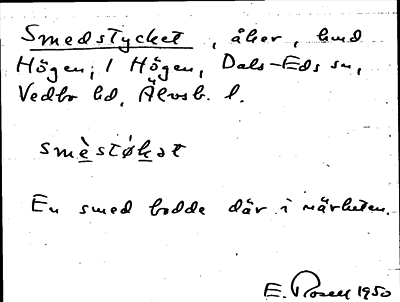 Smedstycket, åker, hmd
Högen, 1 Högen, Dals-Eds sn,
Vedbo hd, Älvsb. l.
smèstøkət
En smed bodde där i närheten.
E. Rosell 1950